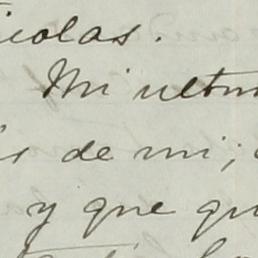 icolas.
Mi ultim
s de mi;
y que qu